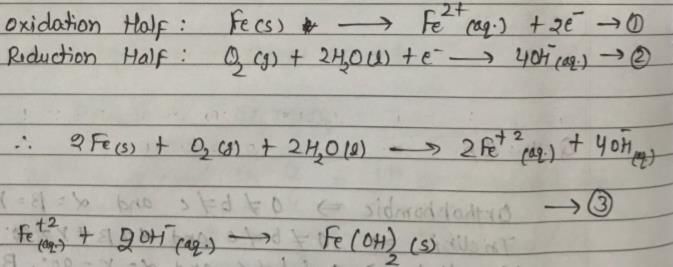 Oxidation Half : Fe(s) → Fe²⁺(aq.) + 2e⁻ → ①
Reduction Half : O₂(g) + 2H₂O(l) + e⁻ → 4OH⁻(aq.) → ②
∴ 2Fe(s) + O₂(g) + 2H₂O(l) → 2Fe⁺²(aq.) + 4OH⁻(aq)
→ ③
Fe⁺²(aq.) + 2OH⁻(aq.) → Fe(OH)₂(s)